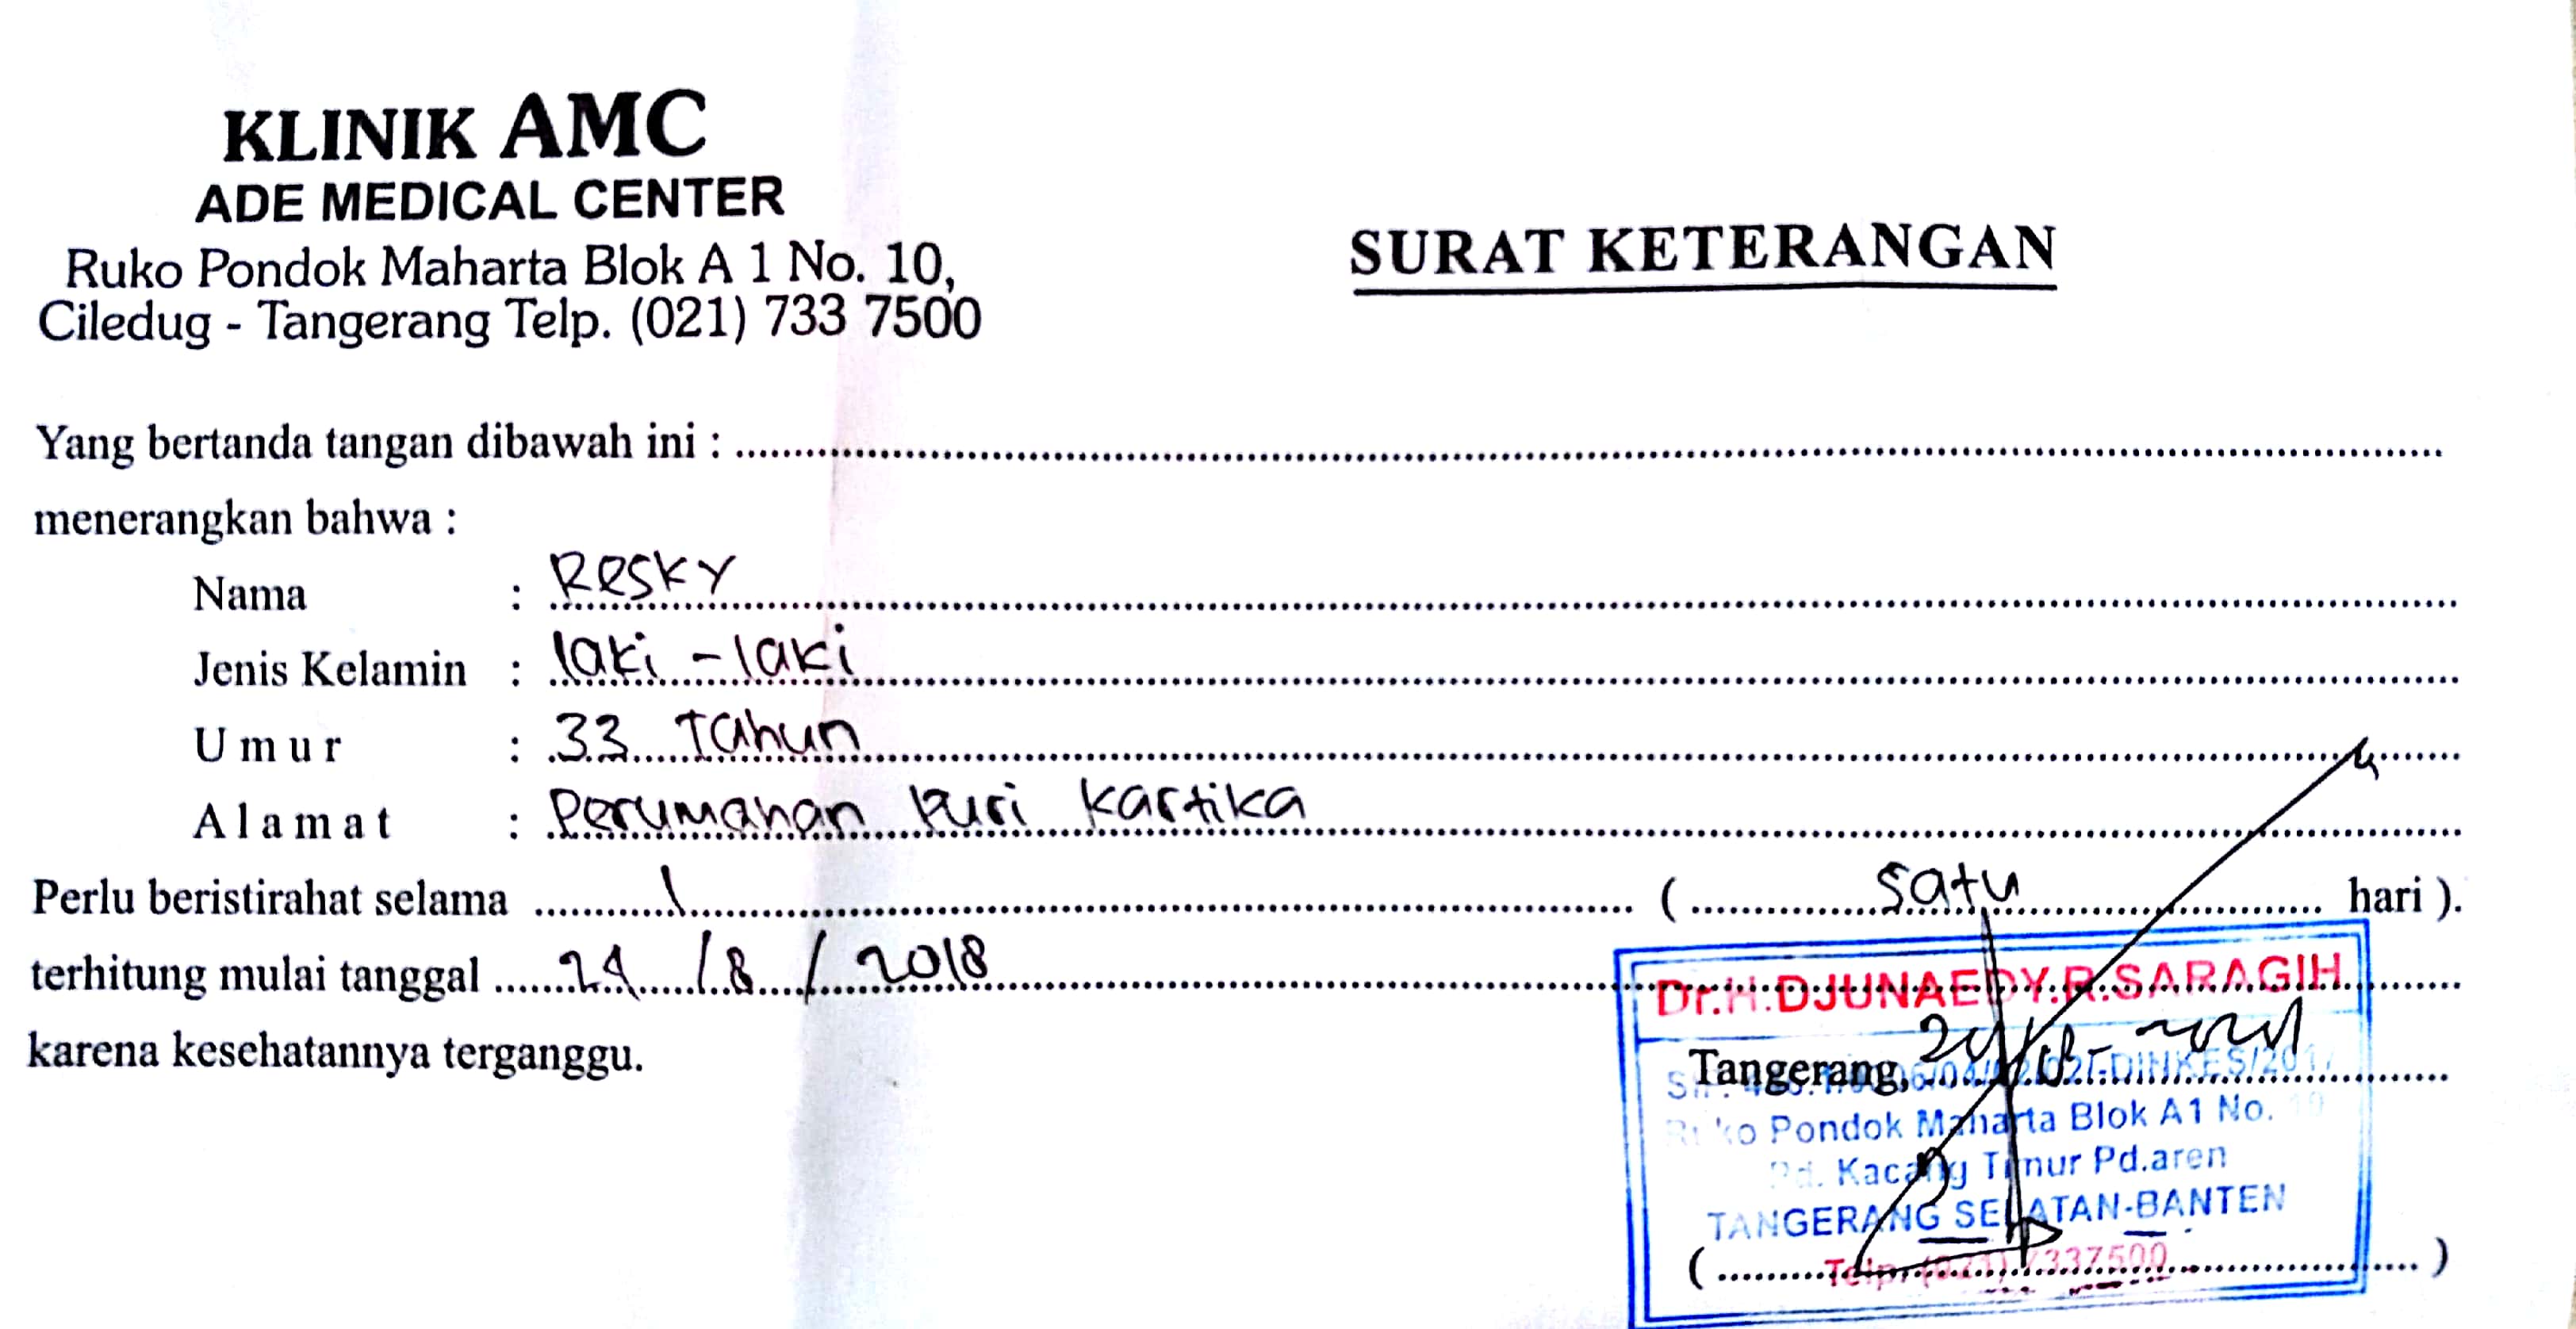 KLINIK AMC
ADE MEDICAL CENTER
Ruko Pondok Maharta Blok A 1 No. 10,
Ciledug - Tangerang Telp. (021) 733 7500
SURAT KETERANGAN
Yang bertanda tangan dibawah ini :
menerangkan bahwa :
Nama : Resky
Jenis Kelamin : laki - laki
Umur : 33 Tahun
Alamat : Perumahan Puri Kartika
Perlu beristirahat selama 1 ( satu hari ).
terhitung mulai tanggal /8/2018
karena kesehatannya terganggu.
Dr.H.DJUNAEDY.R.SARAGIH
Tangerang,
Ruko Pondok Maharta Blok A1 No. 10
Pd. Kacang Timur Pd.aren
TANGERANG SELATAN-BANTEN
Telp. (021) 7337500